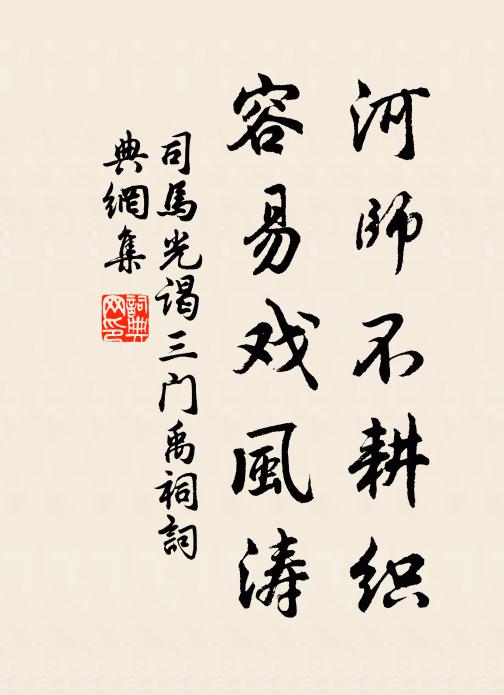 河师不耕织
容易戏風涛
司馬光谒三门禹祠詞
典網集
詞典
网印